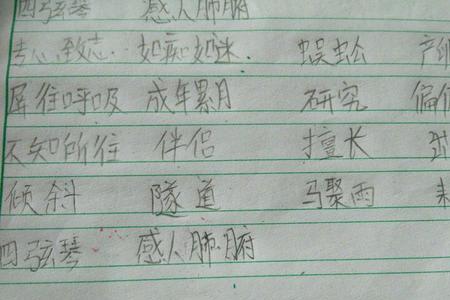 四弦琴 感人肺腑
专心致志. 如痴如迷. 蜈蚣 产
屏住呼吸 成年累月 研究 偏
不知所往 伴侣 擅长
倾斜 隧道 马聚雨
四弦琴 感人肺腑